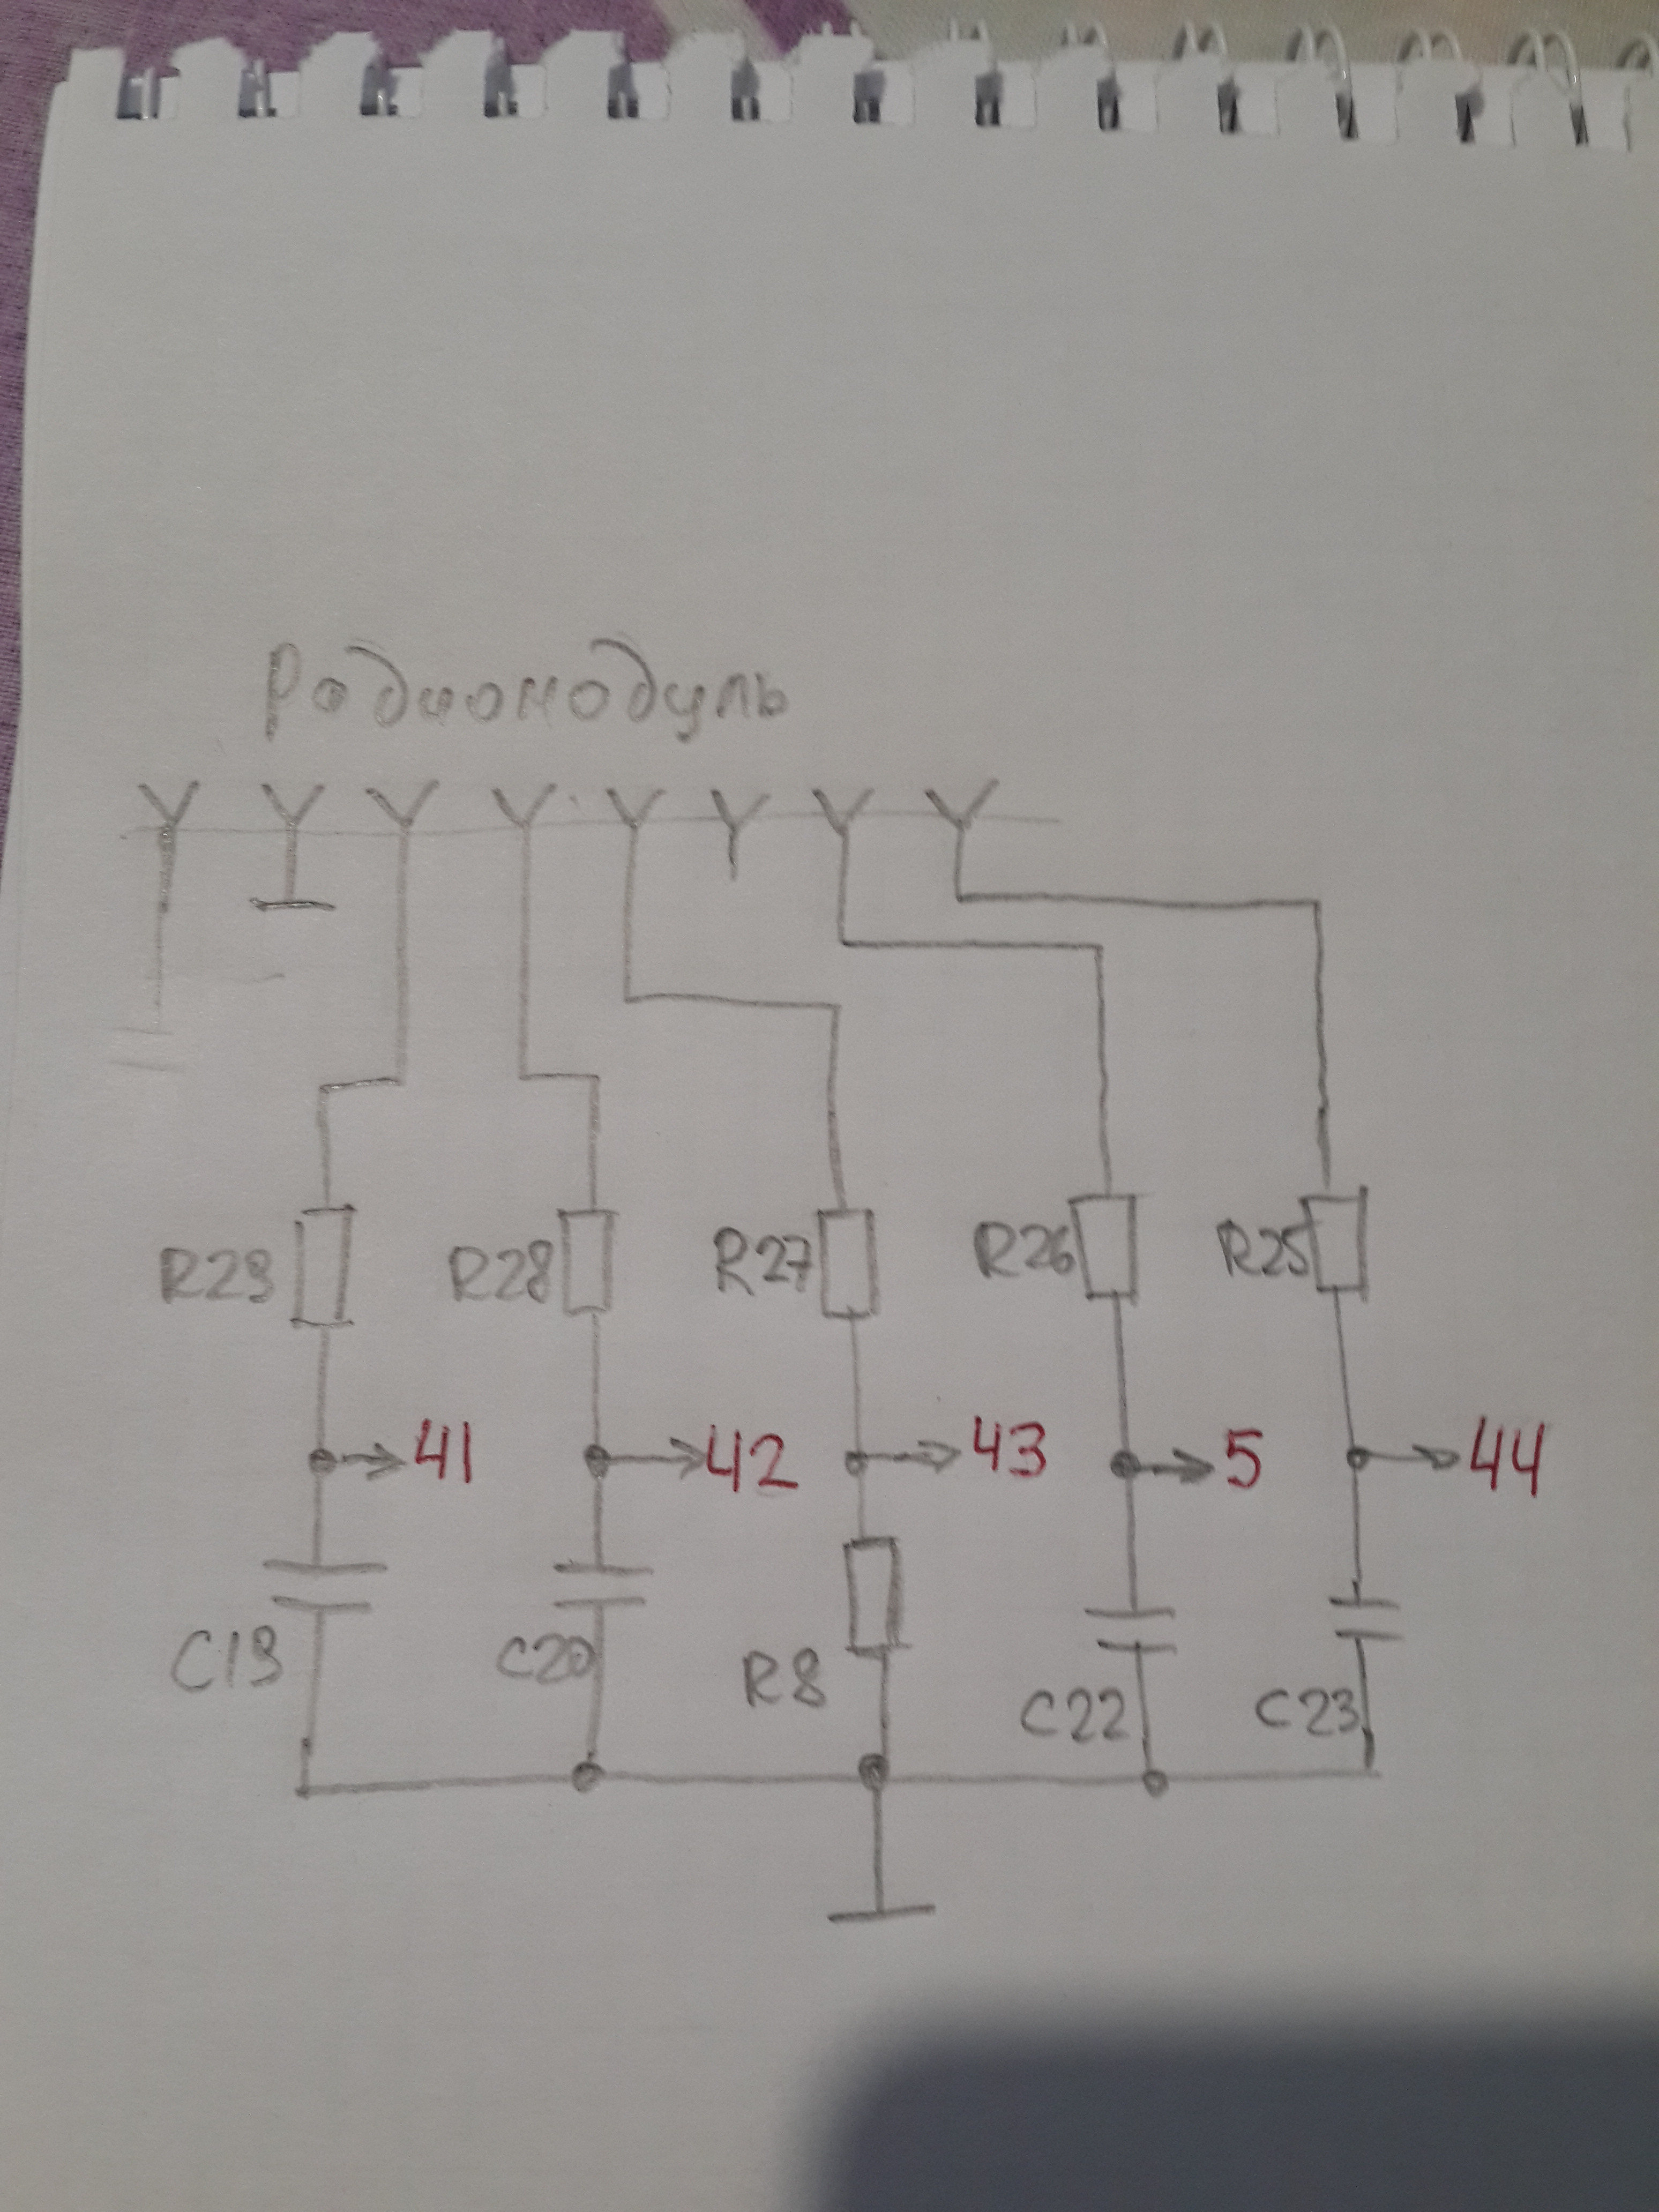 Радиомодуль
R29 R28 R27 R26 R25
41 42 43 5 44
C19 C20 R8 C22 C23